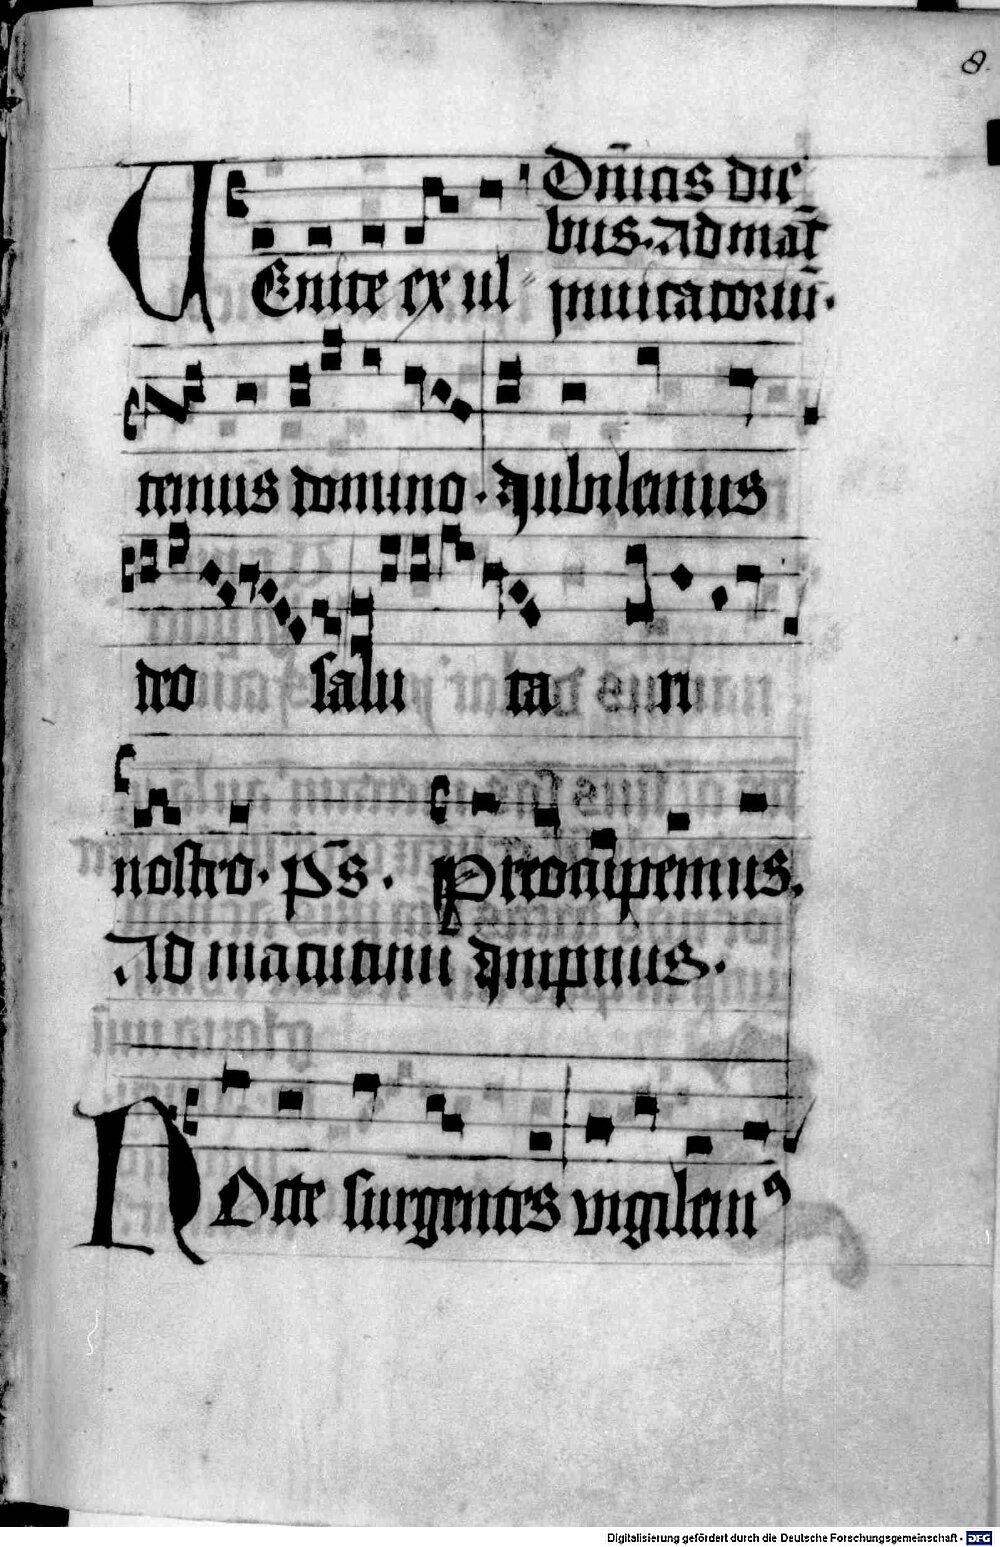 8.
Dn̄icis die
bus. Ad mat̄
inuitatoriū.
VEnite exul
temus domino. Iubilemus
deo salu ta ri
nostro. p̄s. Preocupemus.
Ad matutinū ympnus.
NOcte surgentes vigilemꝰ
Digitalisierung gefördert durch die Deutsche Forschungsgemeinschaft - DFG